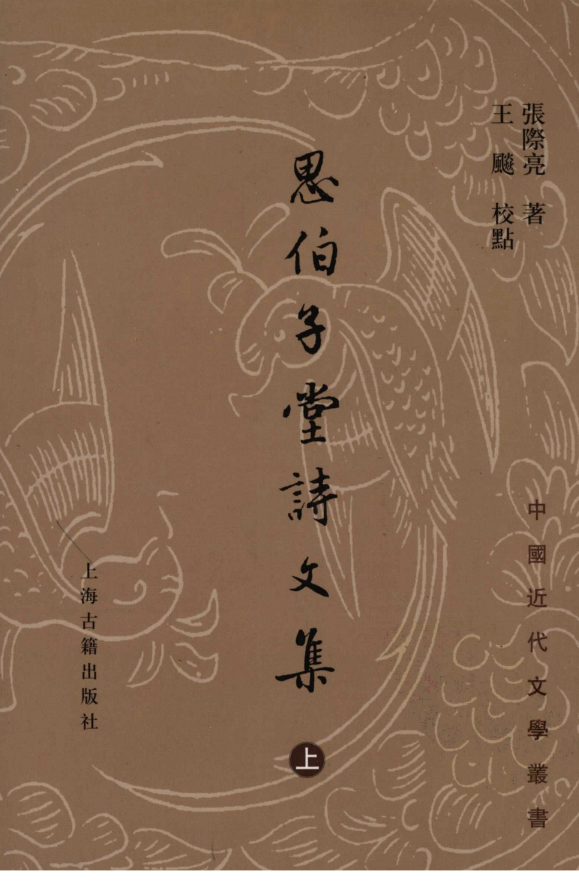 張際亮 著
王飈 校點
思伯子堂詩文集
上
中國近代文學叢書
上海古籍出版社